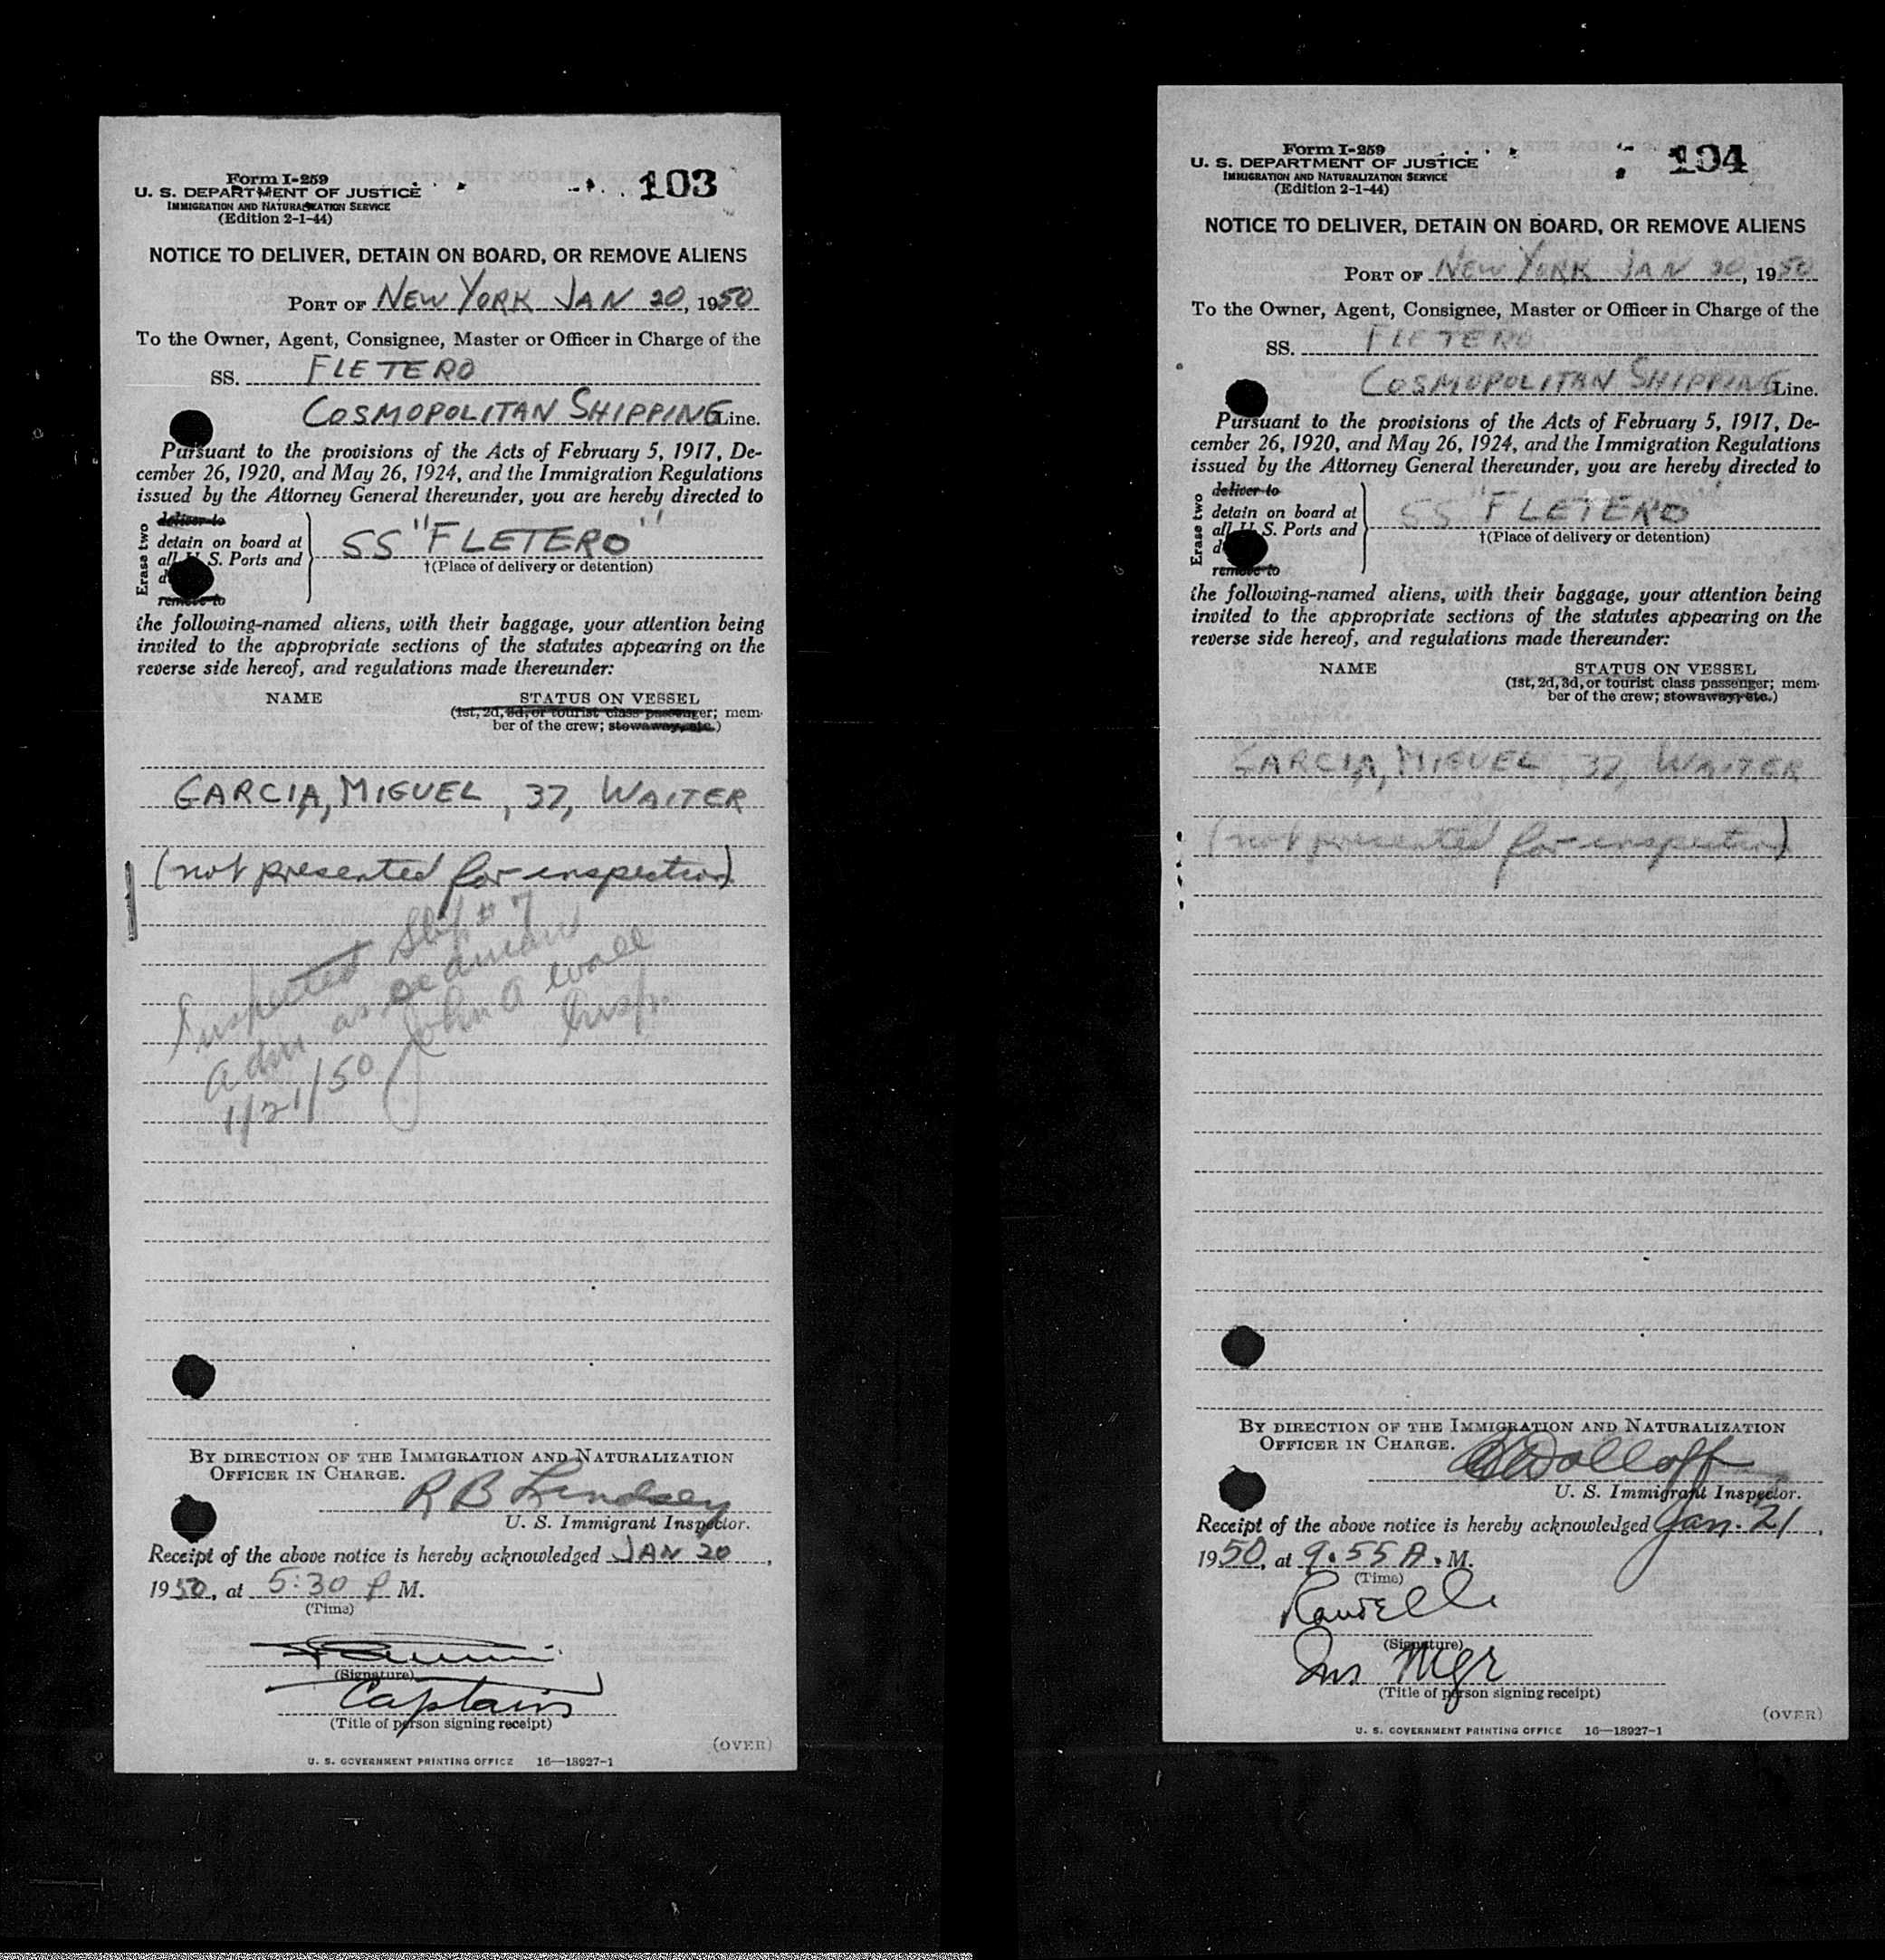 Form I-259
U. S. DEPARTMENT OF JUSTICE
IMMIGRATION AND NATURALIZATION SERVICE
(Edition 2-1-44)
103
NOTICE TO DELIVER, DETAIN ON BOARD, OR REMOVE ALIENS
PORT OF NEW YORK JAN 20, 1950
To the Owner, Agent, Consignee, Master or Officer in Charge of the
SS. FLETERO
COSMOPOLITAN SHIPPING Line.
Pursuant to the provisions of the Acts of February 5, 1917, De-
cember 26, 1920, and May 26, 1924, and the Immigration Regulations
issued by the Attorney General thereunder, you are hereby directed to
Erase two
deliver to
detain on board at
all U. S. Ports and
remove to
SS "FLETERO"
†(Place of delivery or detention)
the following-named aliens, with their baggage, your attention being
invited to the appropriate sections of the statutes appearing on the
reverse side hereof, and regulations made thereunder:
NAME STATUS ON VESSEL
(1st, 2d, 3d, or tourist class passenger; mem-
ber of the crew; stowaway, etc.)
GARCIA, MIGUEL, 37, WAITER
(not presented for inspection)
Inspected Slip # 7
Adm as seaman
1/21/50 John A Wall
Insp.
BY DIRECTION OF THE IMMIGRATION AND NATURALIZATION
OFFICER IN CHARGE.
R B Lindsey
U. S. Immigrant Inspector.
Receipt of the above notice is hereby acknowledged JAN 20,
1950, at 5:30 P M.
(Time)
(Signature)
Captain
(Title of person signing receipt)
(OVER)
U. S. GOVERNMENT PRINTING OFFICE 16—18927-1
Form I-259
U. S. DEPARTMENT OF JUSTICE
IMMIGRATION AND NATURALIZATION SERVICE
(Edition 2-1-44)
104
NOTICE TO DELIVER, DETAIN ON BOARD, OR REMOVE ALIENS
PORT OF NEW YORK JAN 20, 1950
To the Owner, Agent, Consignee, Master or Officer in Charge of the
SS. FLETERO
COSMOPOLITAN SHIPPING Line.
Pursuant to the provisions of the Acts of February 5, 1917, De-
cember 26, 1920, and May 26, 1924, and the Immigration Regulations
issued by the Attorney General thereunder, you are hereby directed to
Erase two
deliver to
detain on board at
all U. S. Ports and
remove to
SS "FLETERO"
†(Place of delivery or detention)
the following-named aliens, with their baggage, your attention being
invited to the appropriate sections of the statutes appearing on the
reverse side hereof, and regulations made thereunder:
NAME STATUS ON VESSEL
(1st, 2d, 3d, or tourist class passenger; mem-
ber of the crew; stowaway, etc.)
GARCIA, MIGUEL, 37, WAITER
(not presented for inspection)
BY DIRECTION OF THE IMMIGRATION AND NATURALIZATION
OFFICER IN CHARGE.
U. S. Immigrant Inspector.
Receipt of the above notice is hereby acknowledged Jan. 21,
1950, at 9.55 A. M.
(Time)
(Signature)
Mgr
(Title of person signing receipt)
(OVER)
U. S. GOVERNMENT PRINTING OFFICE 16—18927-1